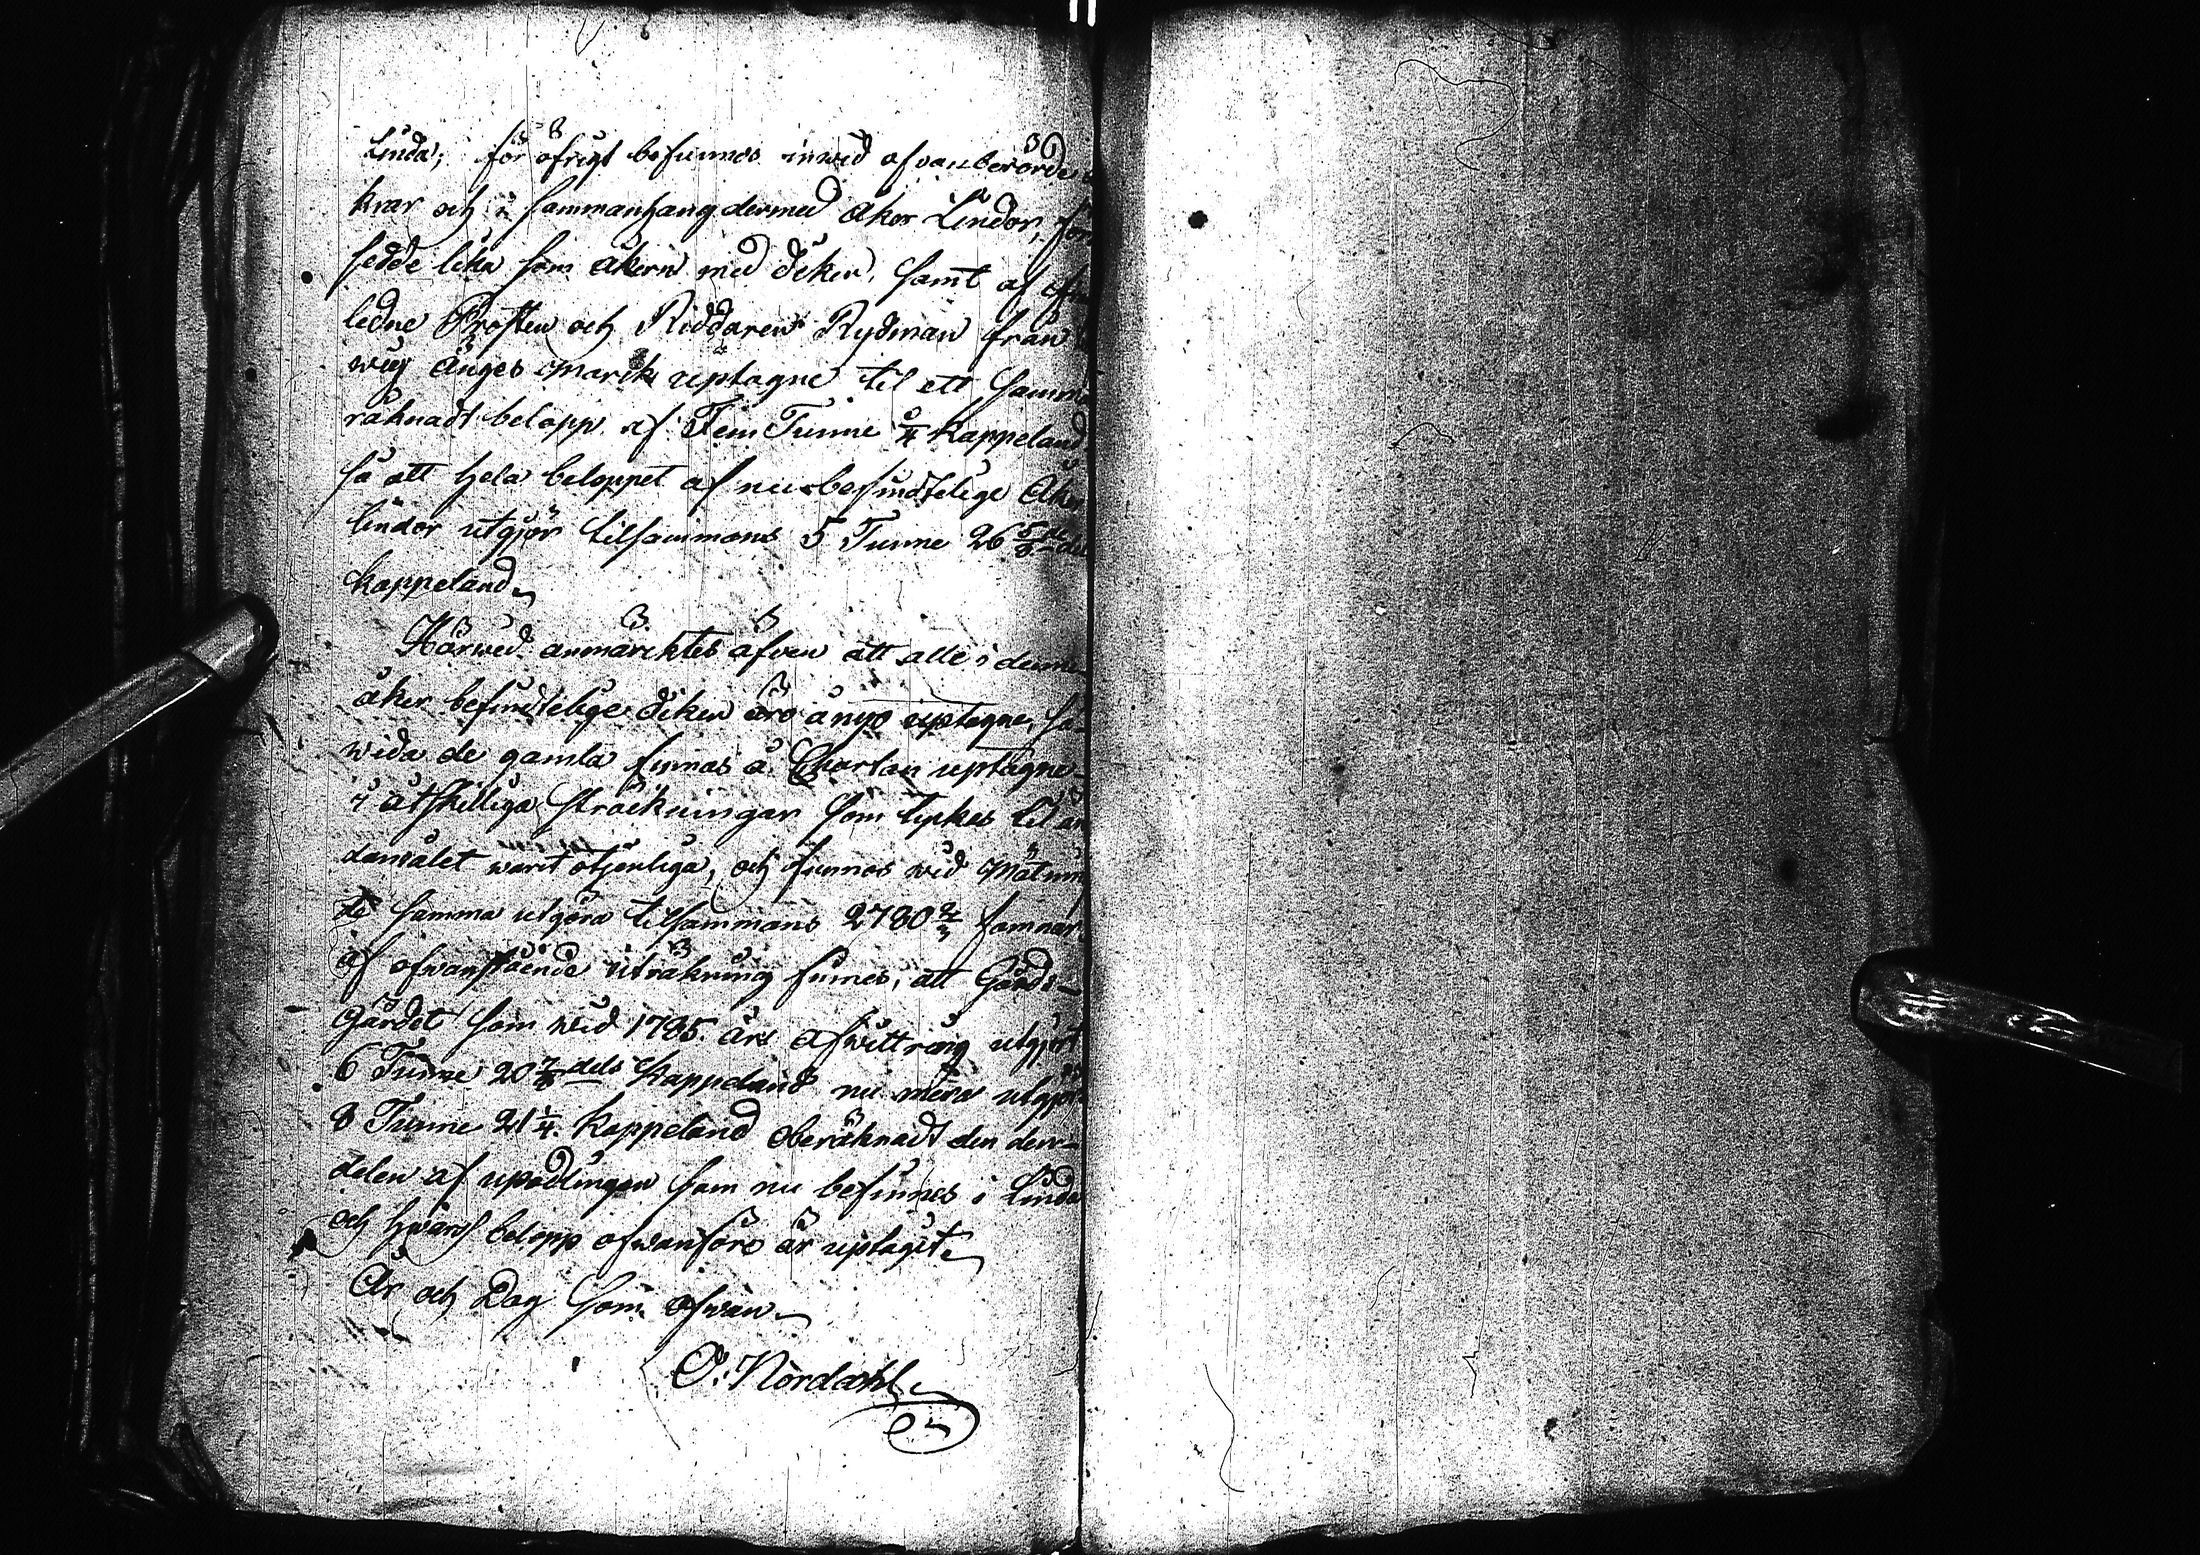 Linda; för öfrigt befunnos inwid ofvanberörde
krar och i sammanhang dermed åker Lindor, för
sedde lika som åkern med diken, samt af
ledne Prosten och Riddaren Rydman från
wug Ängesmark uptagne til ett samman
räknadt belopp af Fem Tunne Kappeland
så att hela beloppet af nu befindtelige Åker
lindor utgjör tilsammans 5 Tunne 26 5/8 del
kappeland.
Härwid anmärcktes äfven att alle i denne
åker befindtelige diken äro å nyo uptagne, så-
wida de gamla finnas å Chartan uptagne
i åtskilliga sträckningar som tyckes til än
damålet warit otjenliga, och funnos wid Mätning
de samma utgöra tilsammans 2780 2/3 famnar
af ofwanstående uträkning finnes, att Gårds-
Gärdet som wid 1785 års Afwittring utgjort
6 Tunne 20 7/8 dels Kappeland nu mera utgjör
8 Tunne 21 1/4 Kappeland oberäknadt den
delen af upodlingen som nu befinnes i Linda
och hwars belopp ofwanföre är uptagit.
År och Dag som ofwan.
O. Nordahl